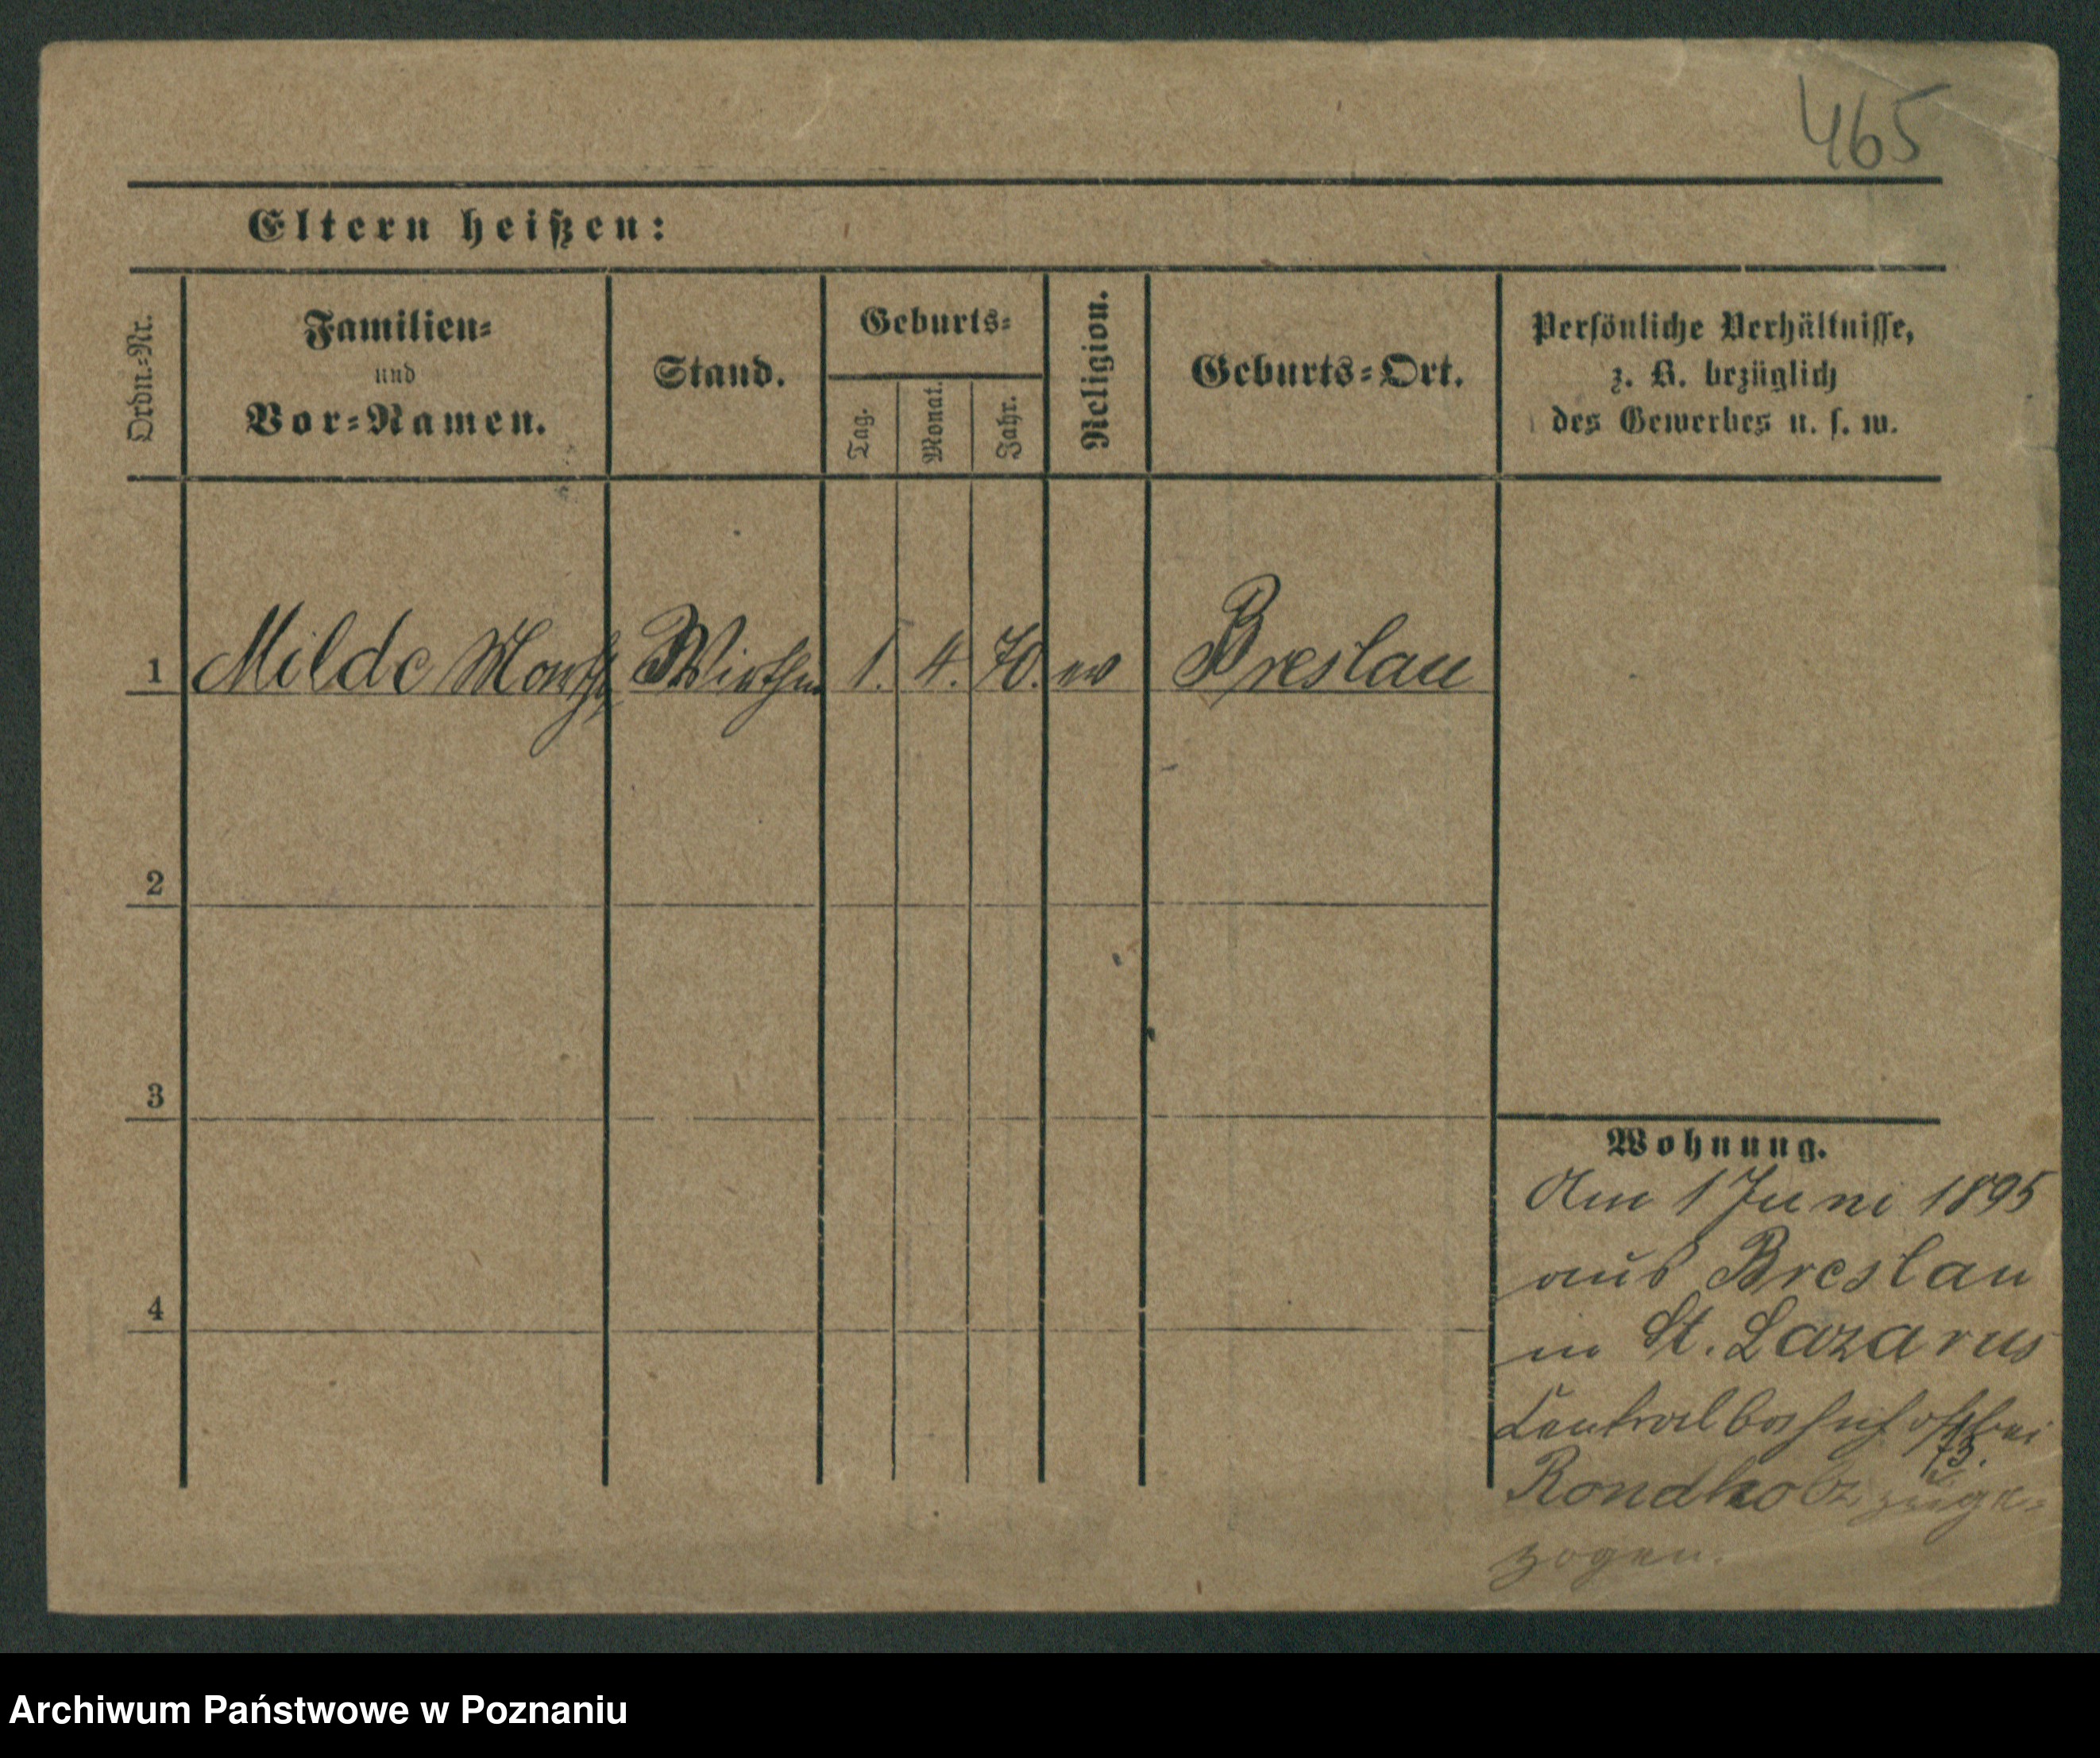 465
Eltern heißen:
Ordn.-Nr.
Familien-
und
Vor-Namen.
Stand.
Geburts-
Tag.
Monat.
Jahr.
Religion.
Geburts-Ort.
Persönliche Verhältnisse,
z. B. bezüglich
des Gewerbes u. s. w.
1 Milde Martha 1. 4. 70. ev Breslau
2
3
4
Wohnung.
Am 1 Juni 1895
aus Breslau
in St. Lazarus
Centralbahnhof bei
Rondholz zuge-
zogen.
Archiwum Państwowe w Poznaniu